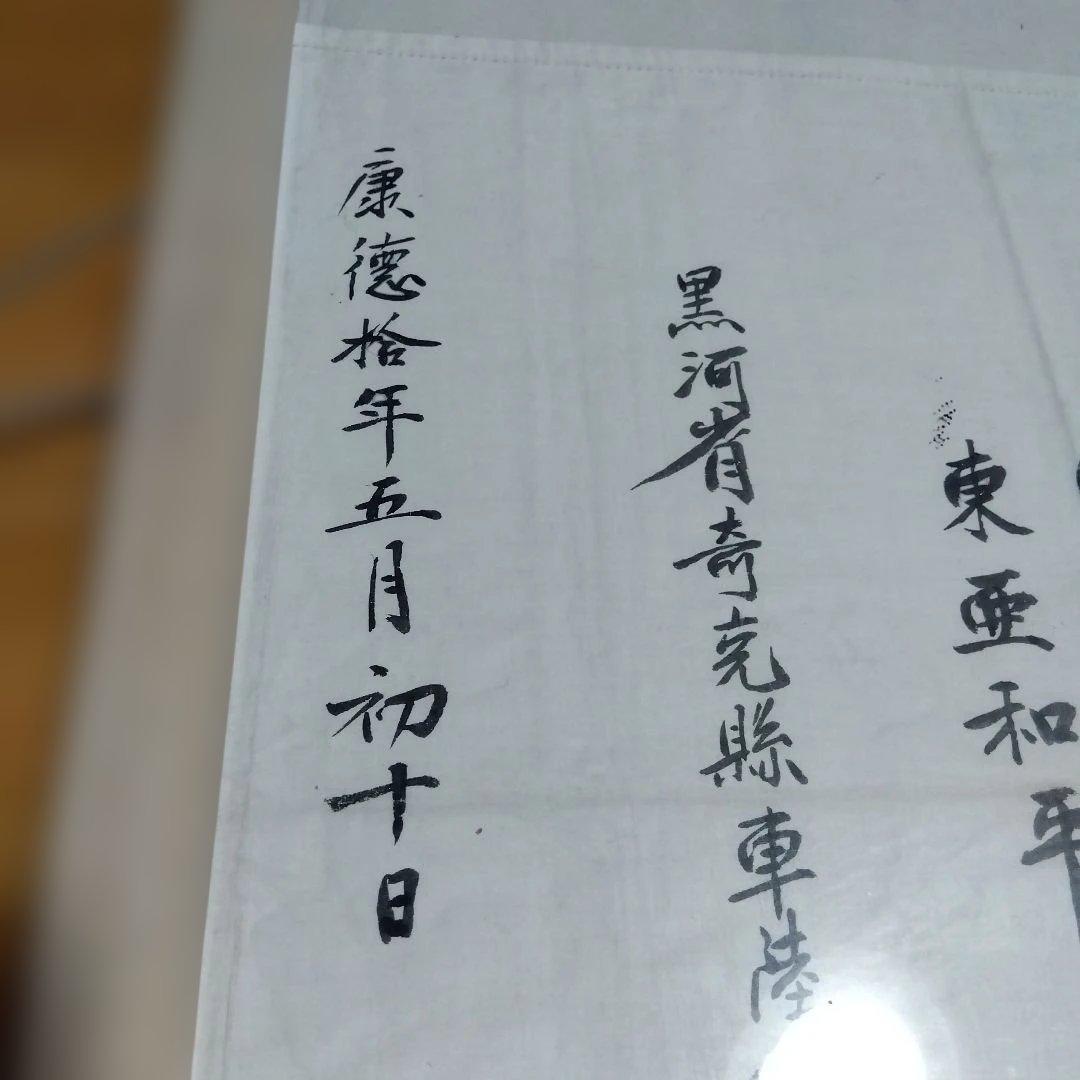 東亜和平
黑河省奇克縣車陸
康德拾年五月初十日